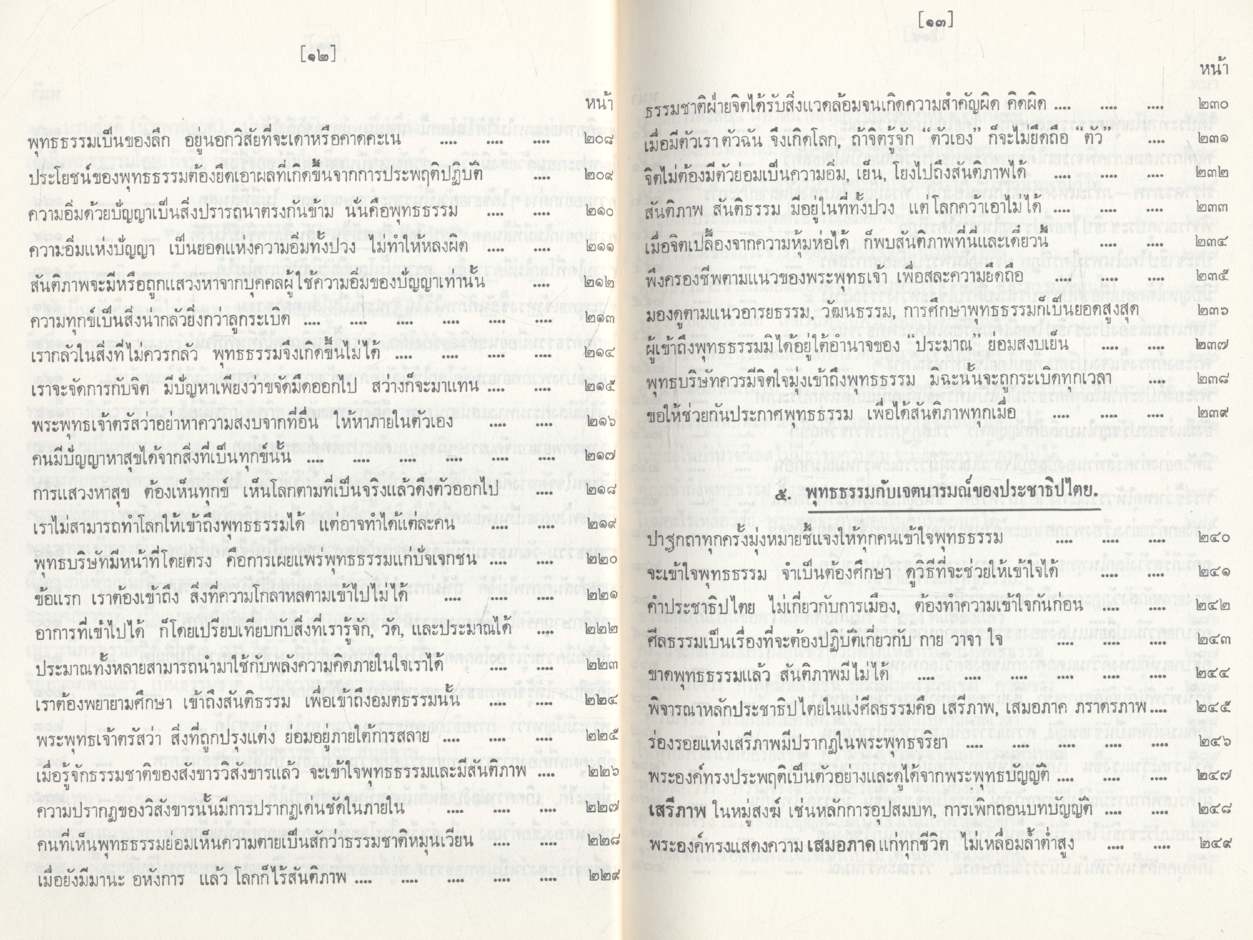 [๑๒]
หน้า
พุทธธรรมเป็นของลึก อยู่นอกวิสัยที่จะเดาหรือคาดคะเน .... .... .... ๒๐๘
ประโยชน์ของพุทธธรรมต้องยึดเอาผลที่เกิดขึ้นจากการประพฤติปฏิบัติ .... ๒๐๙
ความอิ่มด้วยปัญญาเป็นสิ่งปรารถนาตรงกันข้าม นั่นคือพุทธธรรม .... .... ๒๑๐
ความอิ่มแห่งปัญญา เป็นยอดแห่งความอิ่มทั้งปวง ไม่ทำให้หลงผิด .... .... ๒๑๑
สันติภาพจะมีหรือถูกแสวงหาจากบุคคลผู้ใช้ความอิ่มของปัญญาเท่านั้น .... ๒๑๒
ความทุกข์เป็นสิ่งน่ากลัวยิ่งกว่าลูกระเบิด .... .... .... .... .... .... ๒๑๓
เรากลัวในสิ่งที่ไม่ควรกลัว พุทธธรรมจึงเกิดขึ้นไม่ได้ .... .... .... .... ๒๑๔
เราจะจัดการกับจิต มีปัญหาเพียงว่าขจัดมืดออกไป สว่างก็จะมาแทน .... ๒๑๕
พระพุทธเจ้าตรัสว่าอย่าหาความสงบจากที่อื่น ให้หาภายในตัวเอง .... .... ๒๑๖
คนมีปัญญาหาสุขได้จากสิ่งที่เป็นทุกข์นั้น .... .... .... .... .... ๒๑๗
การแสวงหาสุข ต้องเห็นทุกข์ เห็นโลกตามที่เป็นจริงแล้วดึงตัวออกไป .... ๒๑๘
เราไม่สามารถทำโลกให้เข้าถึงพุทธธรรมได้ แต่อาจทำได้แต่ละคน .... .... ๒๑๙
พุทธบริษัทมีหน้าที่โดยตรง คือการเผยแพร่พุทธธรรมแก่ปัจเจกชน .... .... ๒๒๐
ข้อแรก เราต้องเข้าถึง สิ่งที่ความโกลาหลตามเข้าไปไม่ได้ .... .... .... ๒๒๑
อาการที่เข้าไปได้ ก็โดยเปรียบเทียบกับสิ่งที่เรารู้จัก, วัด, และประมาณได้ .... ๒๒๒
ประมาณทั้งหลายสามารถนำมาใช้กับพลังความคิดภายในใจเราได้ .... .... ๒๒๓
เราต้องพยายามศึกษา เข้าถึงสันติธรรม เพื่อเข้าถึงอมตธรรมนั้น .... .... ๒๒๔
พระพุทธเจ้าตรัสว่า สิ่งที่ถูกปรุงแต่ง ย่อมอยู่ภายใต้การสลาย .... .... .... ๒๒๕
เมื่อรู้จักธรรมชาติของสังขารวิสังขารแล้ว จะเข้าใจพุทธธรรมและมีสันติภาพ .... ๒๒๖
ความปรากฏของวิสังขารนั้นมีการปรากฏเด่นชัดในภายใน .... .... .... ๒๒๗
คนที่เห็นพุทธธรรมย่อมเห็นความตายเป็นสักว่าธรรมชาติหมุนเวียน .... .... ๒๒๘
เมื่อยังมีมานะ อหังการ แล้ว โลกก็ไร้สันติภาพ .... .... .... .... .... ๒๒๙
[๑๓]
หน้า
ธรรมชาติฝ่ายจิตได้รับสิ่งแวดล้อมจนเกิดความสำคัญผิด คิดผิด .... .... .... ๒๓๐
เมื่อมีตัวเรา ตัวฉัน จึงเกิดโลก, ถ้าจิตรู้จัก "ตัวเอง" ก็จะไม่ยึดถือ "ตัว" .... ๒๓๑
จิตไม่ต้องมีตัวย่อมเป็นความอิ่ม, เย็น, โยงไปถึงสันติภาพได้ .... .... .... ๒๓๒
สันติภาพ สันติธรรม มีอยู่ในที่ทั้งปวง แต่โลกคว้าเอาไม่ได้ .... .... .... ๒๓๓
เมื่อจิตเปลื้องจากความหุ้มห่อได้ ก็พบสันติภาพที่นี่และเดี๋ยวนี้ .... .... ๒๓๔
พึงครองชีพตามแนวของพระพุทธเจ้า เพื่อสละความยึดถือ .... .... .... ๒๓๕
มองดูตามแนวอารยธรรม, วัฒนธรรม, การศึกษาพุทธธรรมก็เป็นยอดสูงสุด ๒๓๖
ผู้เข้าถึงพุทธธรรมมิได้อยู่ใต้อำนาจของ "ประมาณ" ย่อมสงบเย็น .... .... ๒๓๗
พุทธบริษัทควรมีจิตใจมุ่งเข้าถึงพุทธธรรม มิฉะนั้นจะถูกระเบิดทุกเวลา .... ๒๓๘
ขอให้ช่วยกันประกาศพุทธธรรม เพื่อได้สันติภาพทุกเมื่อ .... .... .... ๒๓๙
๕. พุทธธรรมกับเจตนารมณ์ของประชาธิปไตย.
ปาฐกถาทุกครั้งมุ่งหมายชี้แจงให้ทุกคนเข้าใจพุทธธรรม .... .... .... ๒๔๐
จะเข้าใจพุทธธรรม จำเป็นต้องศึกษา ดูวิธีที่จะช่วยให้เข้าใจได้ .... .... ๒๔๑
คำประชาธิปไตย ไม่เกี่ยวกับการเมือง, ต้องทำความเข้าใจกันก่อน .... .... ๒๔๒
ศีลธรรมเป็นเรื่องที่จะต้องปฏิบัติเกี่ยวกับ กาย วาจา ใจ .... .... .... ๒๔๓
ขาดพุทธธรรมแล้ว สันติภาพมีไม่ได้ .... .... .... .... .... .... ๒๔๔
พิจารณาหลักประชาธิปไตยในแง่ศีลธรรมคือ เสรีภาพ, เสมอภาค ภราดรภาพ .... ๒๔๕
ร่องรอยแห่งเสรีภาพมีปรากฏในพระพุทธจริยา .... .... .... .... .... ๒๔๖
พระองค์ทรงประพฤติเป็นตัวอย่างและดูได้จากพระพุทธบัญญัติ .... .... .... ๒๔๗
เสรีภาพ ในหมู่สงฆ์ เช่นหลักการอุปสมบท, การเพิกถอนบทบัญญัติ .... .... ๒๔๘
พระองค์ทรงแสดงความ เสมอภาค แก่ทุกชีวิต ไม่เหลื่อมล้ำต่ำสูง .... .... ๒๔๙